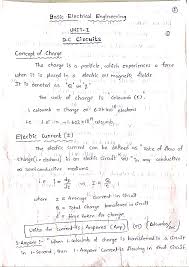 ①
Basic Electrical Engineering
UNIT-I
D.C Circuits
Concept of Charge
The charge is a particle, which experiences a force
when it is placed in a electric or magnetic fields
It is denoted as "Q" or "q"
The unit of charge is "Coulomb" (C).
1 coulomb = charge on 6.24×10¹⁸ electrons
i.e 1 e⁻ = 1.602×10⁻¹⁹ coulomb.
Electric Current (I)
The electric current can be defined as "Rate of flow of
charge (electron) in an electric circuit" or in any conductive
or semiconductive medium.
i.e
where I = Average Current in Circuit
Q = Total charge transferred in Circuit
t = Time taken for charge
Units for current is Amperes (Amp) (or) Coulombs/sec
1-Ampere :- When 1-coulomb of charge is transferred in a Circuit
in 1-Second, then 1-Ampere Current is flowing in that Circuit